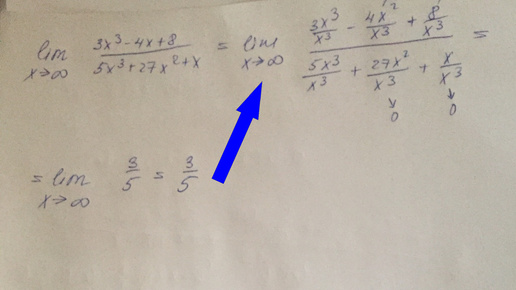 lim x→∞ (3x³ - 4x + 8)/(5x³ + 27x² + x) = lim x→∞ (3x³/x³ - 4x²/x³ + 8/x³)/(5x³/x³ + 27x²/x³ + x/x³) =
↓ 0 ↓ 0
= lim x→∞ 3/5 = 3/5